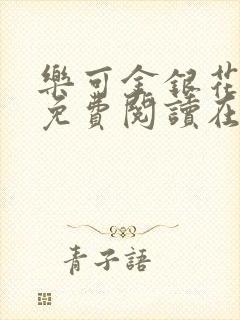 樂可金銀花
免費閱讀在
青子語